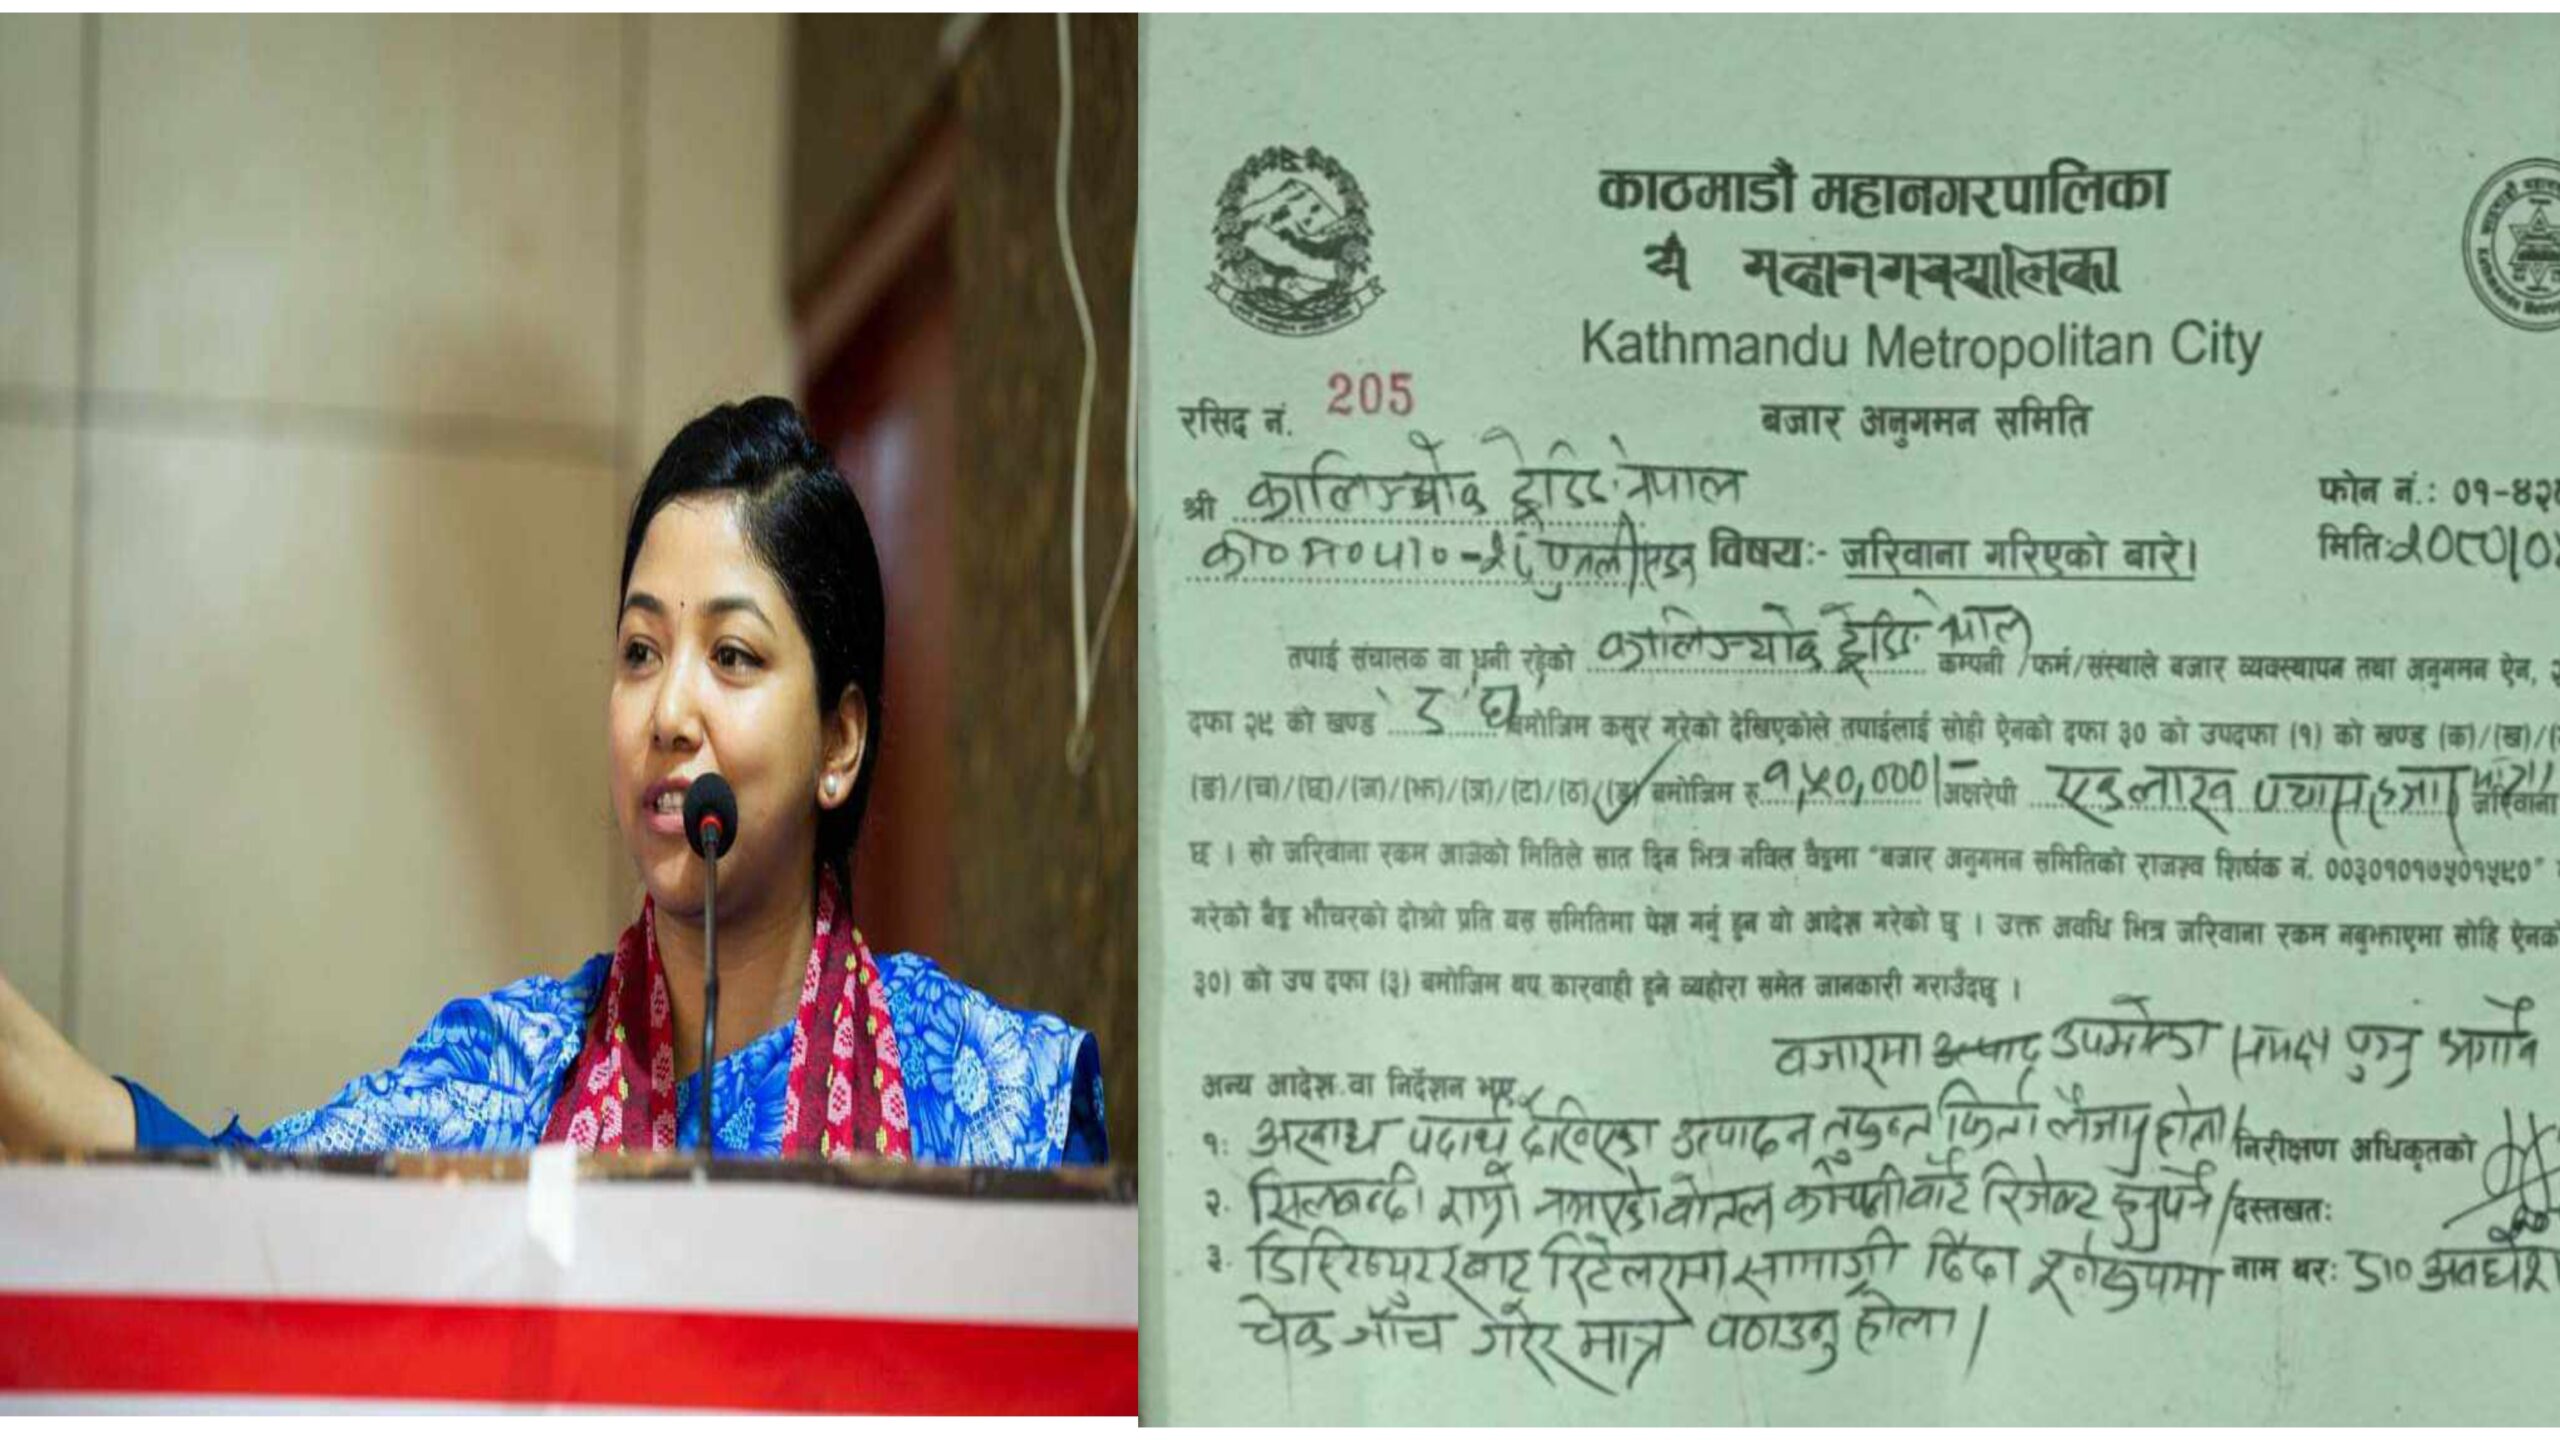 काठमाडौं महानगरपालिका
Kathmandu Metropolitan City
रसिद नं. 205
बजार अनुगमन समिति
श्री कालिञ्चोक ट्रेडिङ नेपाल
फोन नं.: ०१-४२
का०म०पा०- विषयः- जरिवाना गरिएको बारे।
मिति: २०८०/०
तपाई संचालक वा धनी रहेको कालिञ्चोक ट्रेडिङ नेपाल कम्पनी/फर्म/संस्थाले बजार व्यवस्थापन तथा अनुगमन ऐन,
दफा २९ को खण्ड बमोजिम कसूर गरेको देखिएकोले तपाईलाई सोही ऐनको दफा ३० को उपदफा (१) को खण्ड (क)/(ख)/
(ङ)/(च)/(छ)/(ज)/(झ)/(ञ)/(ट)/(ठ)/ बमोजिम रु. १,५०,०००/- अक्षरेपी एक लाख पचास हजार मात्र जरिवाना
छ । सो जरिवाना रकम आजको मितिले सात दिन भित्र नविल बैङ्कमा "बजार अनुगमन समितिको राजश्व शिर्षक नं. ००३०१०१७५०१५९०"
गरेको बैङ्क भौचरको दोश्रो प्रति यस समितिमा पेश गर्नु हुन यो आदेश गरेको छु । उक्त अवधि भित्र जरिवाना रकम नबुझाएमा सोहि ऐनको
३०) को उप दफा (३) बमोजिम थप कारवाही हुने व्यहोरा समेत जानकारी गराउँदछु ।
बजारमा उत्पाद उपभोक्ता समक्ष पुग्नु अगावै
अन्य आदेश वा निर्देशन भए
१. अखाद्य पदार्थ देखिएका उत्पादन तुरुन्त फिर्ता लैजानु होला।
निरीक्षण अधिकृतको
२. सिलबन्दी राम्रो नभएको बोतल कम्पनीबाट रिजेक्ट हुनुपर्ने।
दस्तखत:
३. डिस्ट्रिब्युटरबाट रिटेलरमा सामाग्री दिंदा
नाम थर: डा० अवधेश
चेक जाँच गरेर मात्र पठाउनु होला।